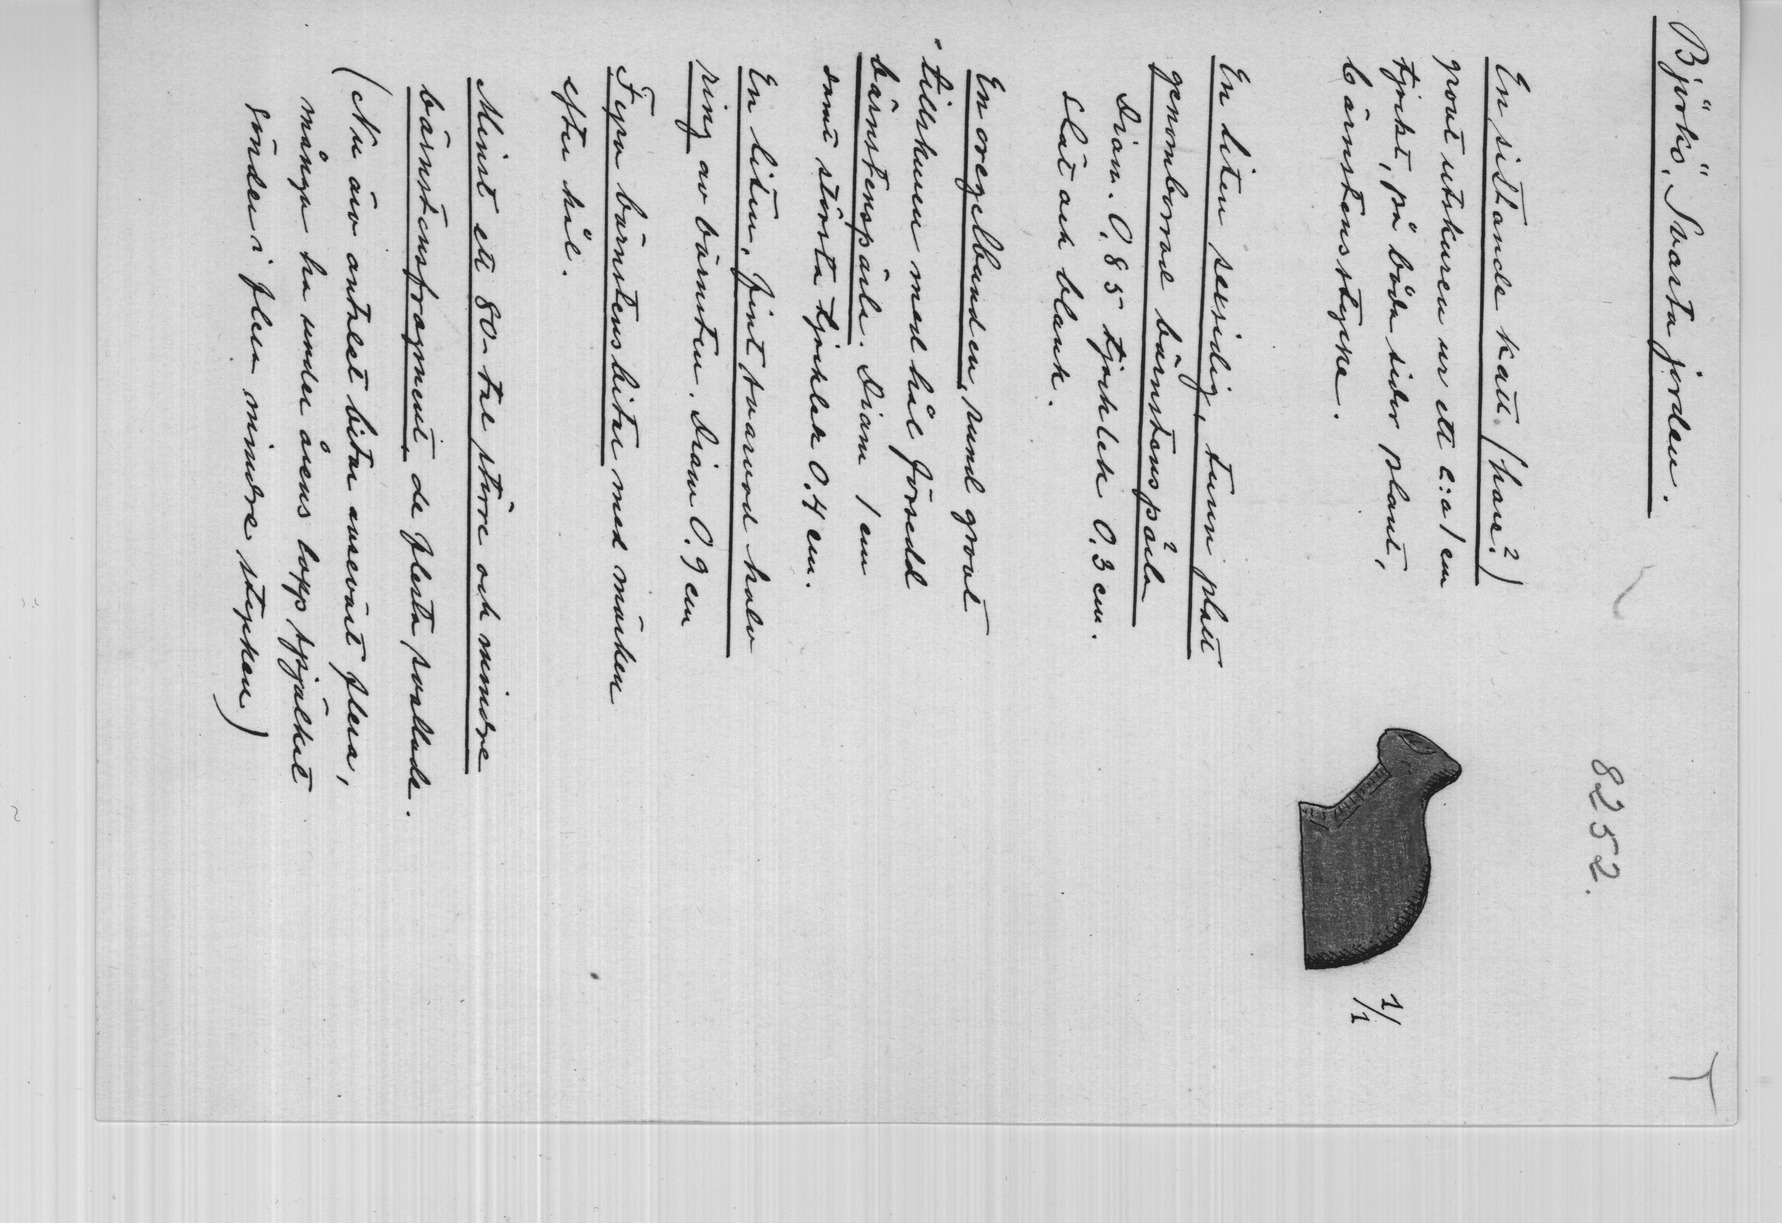 Björkö, "Svarta jorden."
8252.
En sittande katt (hare?)
grovt utskuren ur ett c:a 1 cm
tjockt, på båda sidor plant,
bärnstensstycke.
1/1
En liten sexsidig, tunn platt
genomborrad bärnstenspärla
Diam. 0,85 tjocklek 0,3 cm.
slät och blank.
En oregelbunden, rund grovt
tillskuren med hål försedd
bärnstenspärla. Diam 1 cm
samt största tjocklek 0.4 cm.
En liten, fint svarvad halv
ring av bärnsten. Diam 0.9 cm
Fyra bärnstensbitar med märken
efter hål.
Minst ett 80-tal större och mindre
bärnstensfragment, de flesta svallade.
(Nu äro antalet bitar avsevärt flera,
många ha under årens lopp spjälkat
sönder i flera mindre stycken)